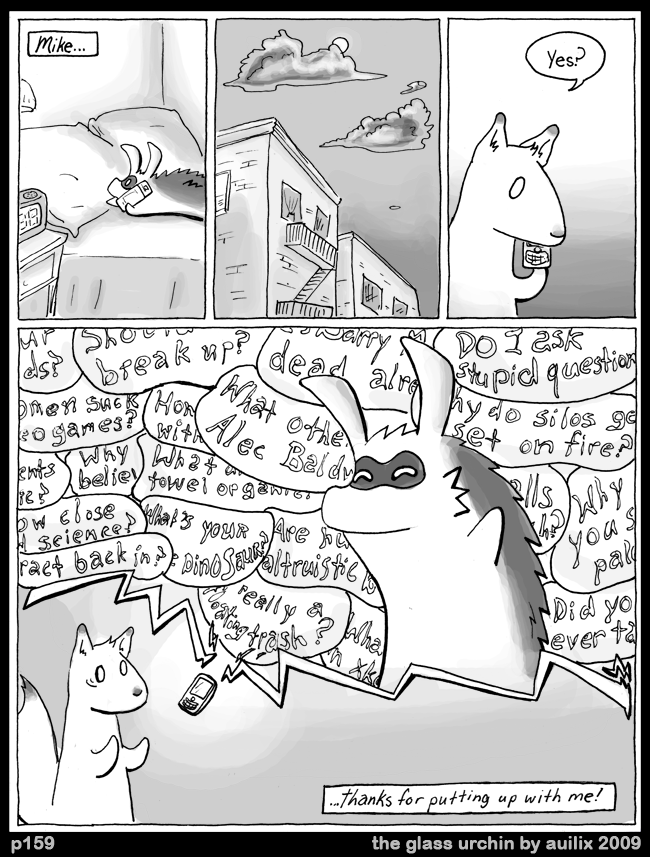 Mike...
Yes?
Should
break up?
Sorry
dead
DO I ASK
stupid question
suck
games?
What othe
Alec Baldw
hy do silos ge
set on fire?
Why
believ
What
towel organi
with
ow close
science?
ract back in?
What's your
DINOSAU
Are hu
altruistic
Why
you s
really a
eating trash?
Did yo
ever ta
...thanks for putting up with me!
p159
the glass urchin by auilix 2009